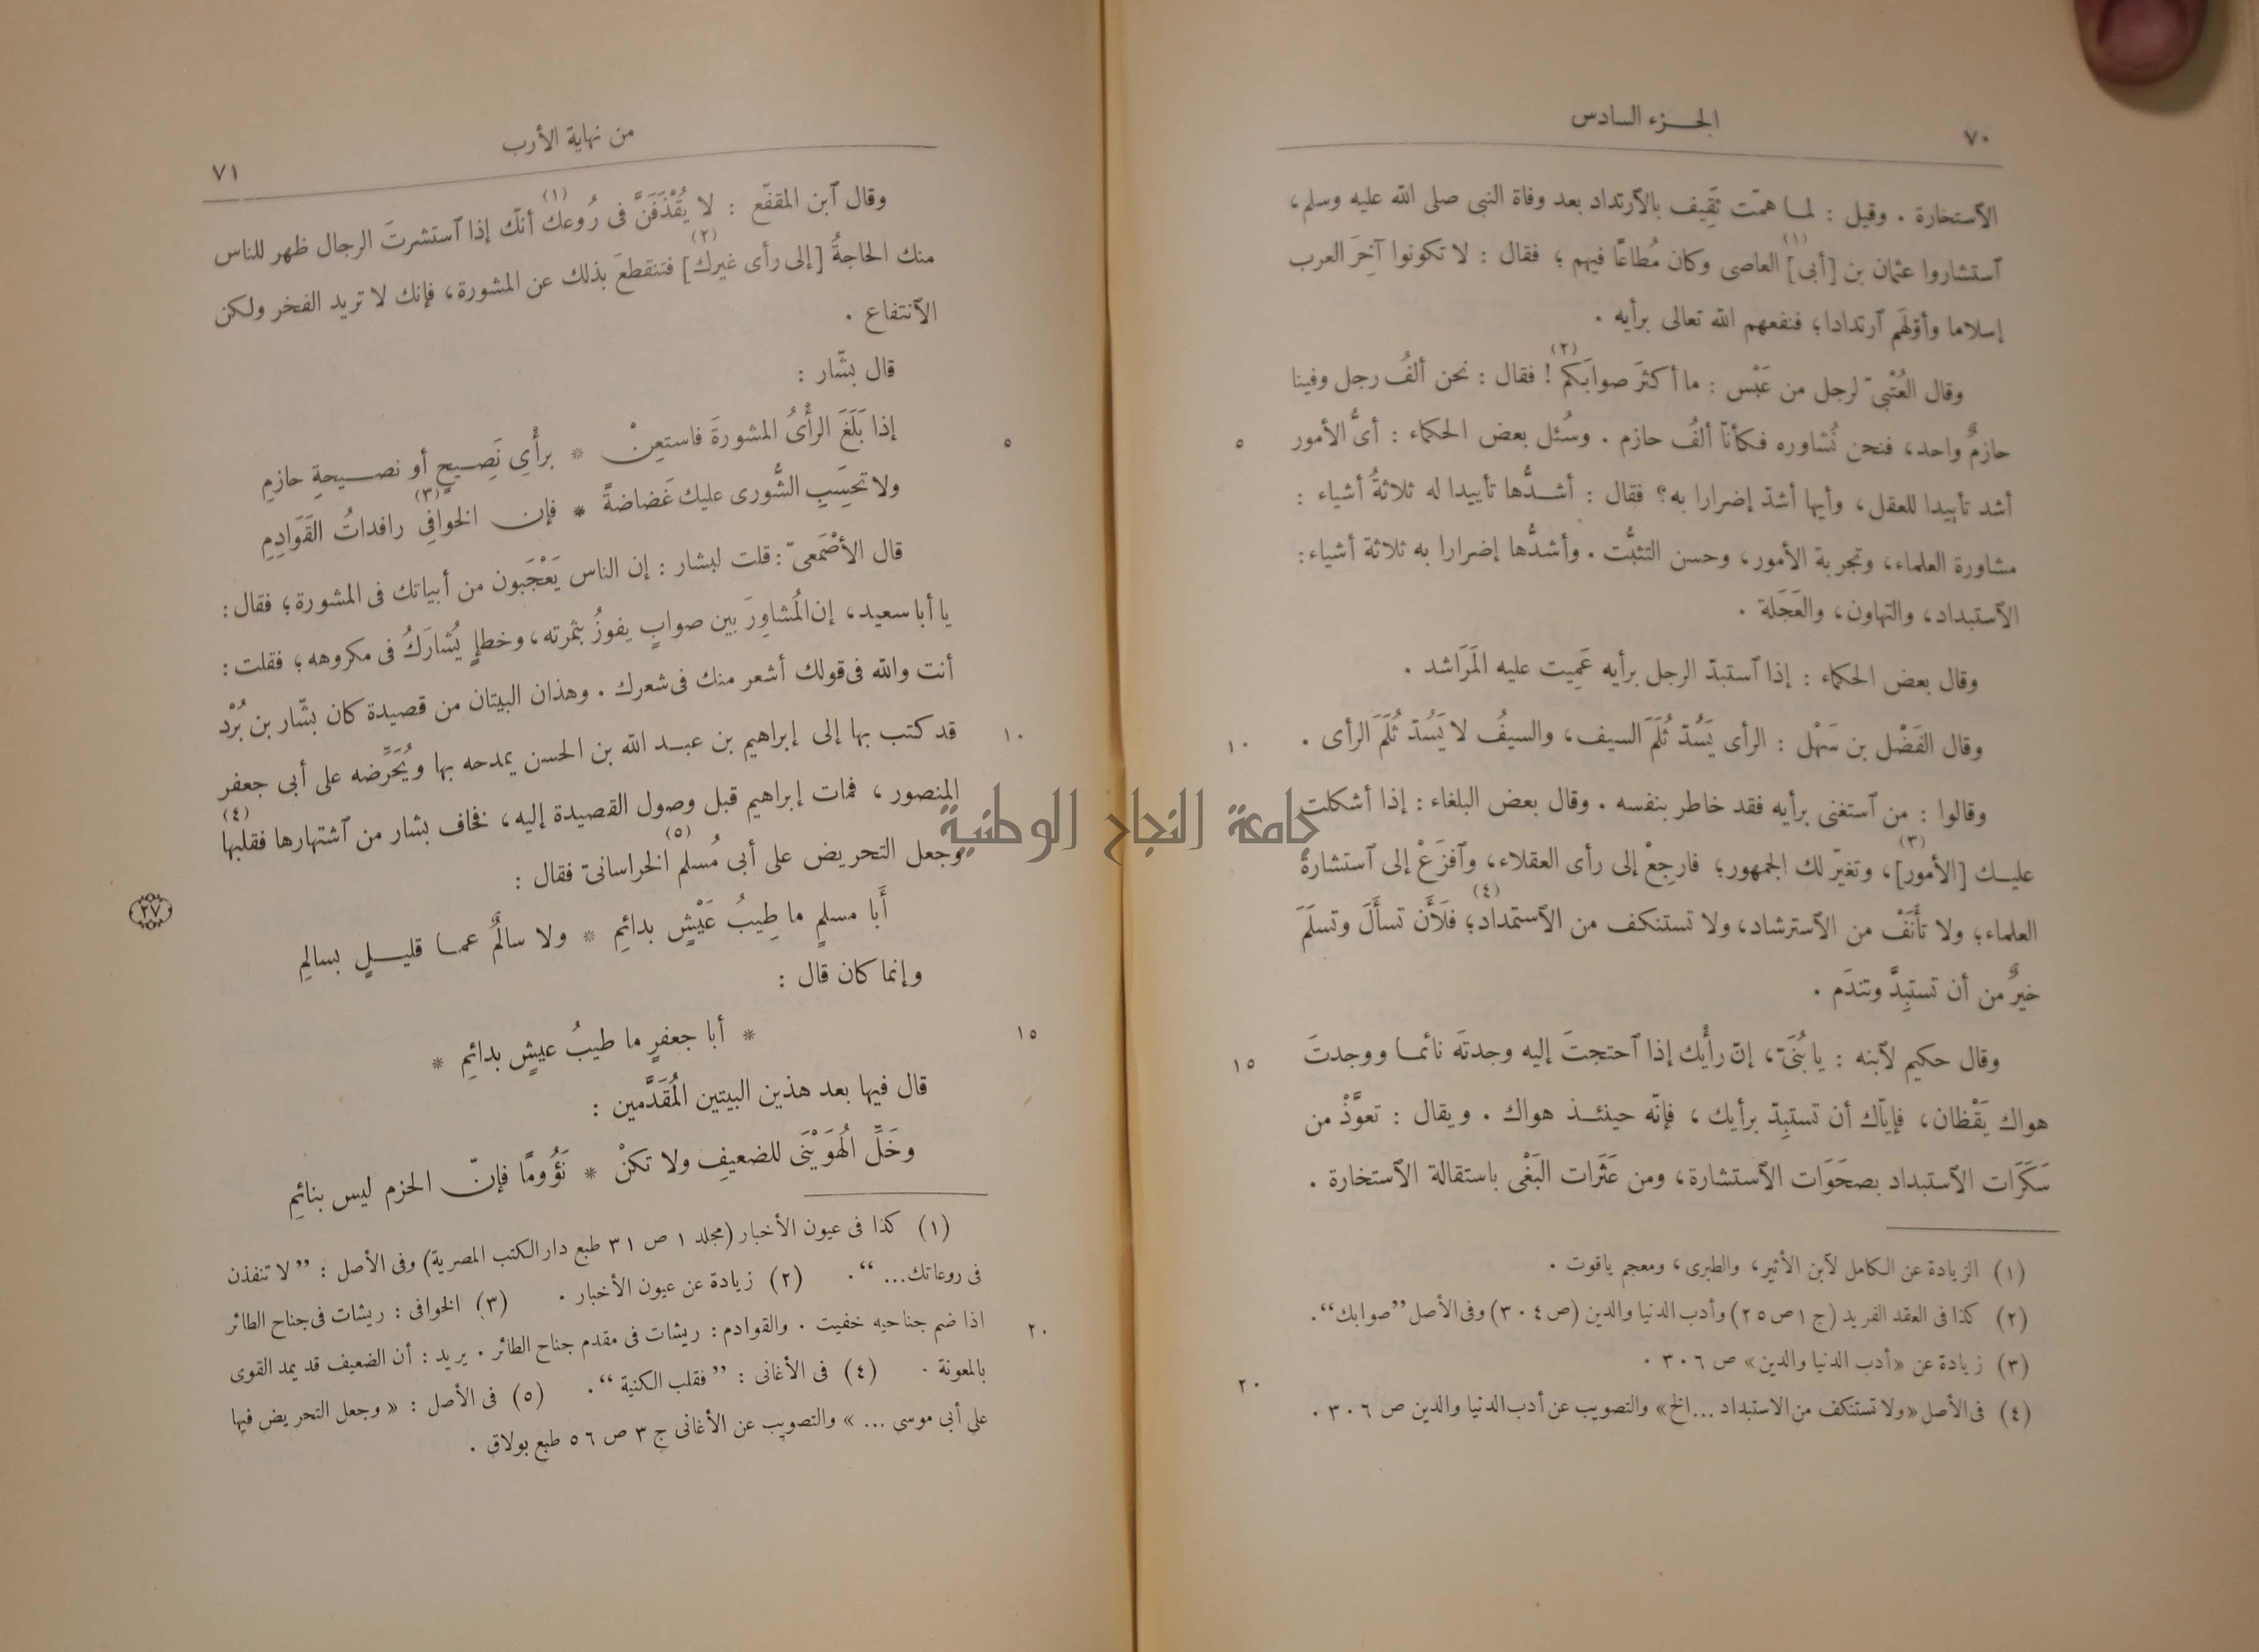 ٧٠
الجـزء السادس
الآستخارة . وقيل : لما همّت ثَقِيف بالآرتداد بعد وفاة النبى صلى الله عليه وسلم،
آستشاروا عثمان بن [أبى](١) العاصى وكان مُطاعًا فيهم؛ فقال : لا تكونوا آخِرَ العرب
إسلاما وأوّلهَم آرتدادا؛ فنفعهم الله تعالى برأيه .
وقال العُتْبىّ لرجل من عَبْس : ما أكثرَ صوابَكم(٢)! فقال : نحن ألفُ رجل وفينا
حازمٌ واحد، فنحن نُشاوره فكأنا ألفُ حازم . وسُئل بعض الحكماء : أىُّ الأمور
٥
أشد تأييدا للعقل، وأيها أشدّ إضرارا به؟ فقال : أشـدُّها تأييدا له ثلاثةُ أشياء :
مشاورة العلماء، وتجربة الأمور، وحسن التثبُّت . وأشدُّها إضرارا به ثلاثة أشياء:
الآستبداد، والتهاون، والعَجَلة .
وقال بعض الحكماء : إذا آستبدّ الرجل برأيه عَمِيت عليه المَرَاشد .
وقال الفَضْل بن سَهْل : الرأى يَسُدّ ثُلَمَ السيف، والسيفُ لا يَسُدّ ثُلَمَ الرأى .
١٠
وقالوا : من آستغنى برأيه فقد خاطر بنفسه . وقال بعض البلغاء : إذا أشكلت
عليـك [الأمور](٣)، وتغيّر لك الجمهور؛ فارجِعْ إلى رأى العقلاء، وآفزَعْ إلى آستشارة
العلماء؛ ولا تأنَفْ من الآسترشاد، ولا تستنكف من الآستمداد(٤)؛ فلَأَن تسأَلَ وتسلَمَ
خيرٌ من أن تستبِدَّ وتندَم .
وقال حكيم لآبنه : يا بُنَىّ، إنّ رأيك إذا آحتجتَ إليه وجدتَه نائمـا ووجدتَ
١٥
هواك يَقْظان، فإيّاك أن تستبِدّ برأيك، فإنّه حينئـذ هواك . ويقال : تعوَّذْ من
سَكَرَات الآستبداد بصحَوَات الآستشارة، ومن عَثَرات البَغْى باستقالة الآستخارة .
(١) الزيادة عن الكامل لآبن الأثير، والطبرى، ومعجم ياقوت .
(٢) كذا فى العقد الفريد (ج ١ ص ٢٥) وأدب الدنيا والدين (ص ٣٠٤) وفى الأصل ”صوابك“.
(٣) زيادة عن «أدب الدنيا والدين» ص ٣٠٦ .
٢٠
(٤) فى الأصل «ولا تستنكف من الاستبداد ...الخ» والتصويب عن أدب الدنيا والدين ص ٣٠٦ .
جامعة النجاح الوطنية
من نهاية الأرب
٧١
وقال آبن المقفّع : لا يُقْذَفَنَّ فى رُوعك(١) أنّك إذا آستشرتَ الرجال ظهر للناس
منك الحاجةُ [إلى رأى غيرك](٢) فتنقطعَ بذلك عن المشورة، فإنك لا تريد الفخر ولكن
الآنتفاع .
قال بشّار :
إذا بَلَغَ الرأْىُ المشورةَ فاستعِنْ * برأْىِ نَصِيحٍ أو نصيـحةِ حازمِ
٥
ولا تحسَبِ الشُّورى عليك غَضاضةً * فإن الخوافِى(٣) رافداتُ القَوَادِمِ
قال الأَصْمَعىّ : قلت لبشار : إن الناس يَعْجَبون من أبياتك فى المشورة؛ فقال :
يا أبا سعيد، إن المُشاوِرَ بين صوابٍ يفوزُ بثمرته، وخطإٍ يُشارَكُ فى مكروهه؛ فقلت :
أنت والله فى قولك أشعر منك فى شعرك . وهذان البيتان من قصيدة كان بشّار بن بُرْد
قد كتب بها إلى إبراهيم بن عبـد الله بن الحسن يمدحه بها ويُحَرِّضه على أبى جعفر
١٠
المنصور، فمات إبراهيم قبل وصول القصيدة إليه، فخاف بشار من آشتهارها فقلبها(٤)
وجعل التحريض على أبى مُسلم(٥) الخراسانىّ فقال :
أَبا مسلمٍ ما طِيبُ عَيْشٍ بدائمِ * ولا سالمٌ عمـا قليـلٍ بسالمِ
٢٧
وإنما كان قال :
* أبا جعفرٍ ما طيبُ عيشٍ بدائمِ *
١٥
قال فيها بعد هذين البيتين المُقَدَّمين :
وخَلِّ الهُوَيْنَى للضعيفِ ولا تكنْ * نَؤُومًا فإنّ الحزم ليس بنائمِ
(١) كذا فى عيون الأخبار (مجلد ١ ص ٣١ طبع دار الكتب المصرية) وفى الأصل : ”لا تنفذن
فى روعاتك... “. (٢) زيادة عن عيون الأخبار . (٣) الخوافى : ريشات فى جناح الطائر
اذا ضم جناحيه خفيت . والقوادم : ريشات فى مقدم جناح الطائر . يريد : أن الضعيف قد يمد القوى
٢٠
بالمعونة . (٤) فى الأغانى : ”فقلب الكنية“. (٥) فى الأصل : « وجعل التحريض فيها
على أبى موسى ... » والتصويب عن الأغانى ج ٣ ص ٥٦ طبع بولاق .